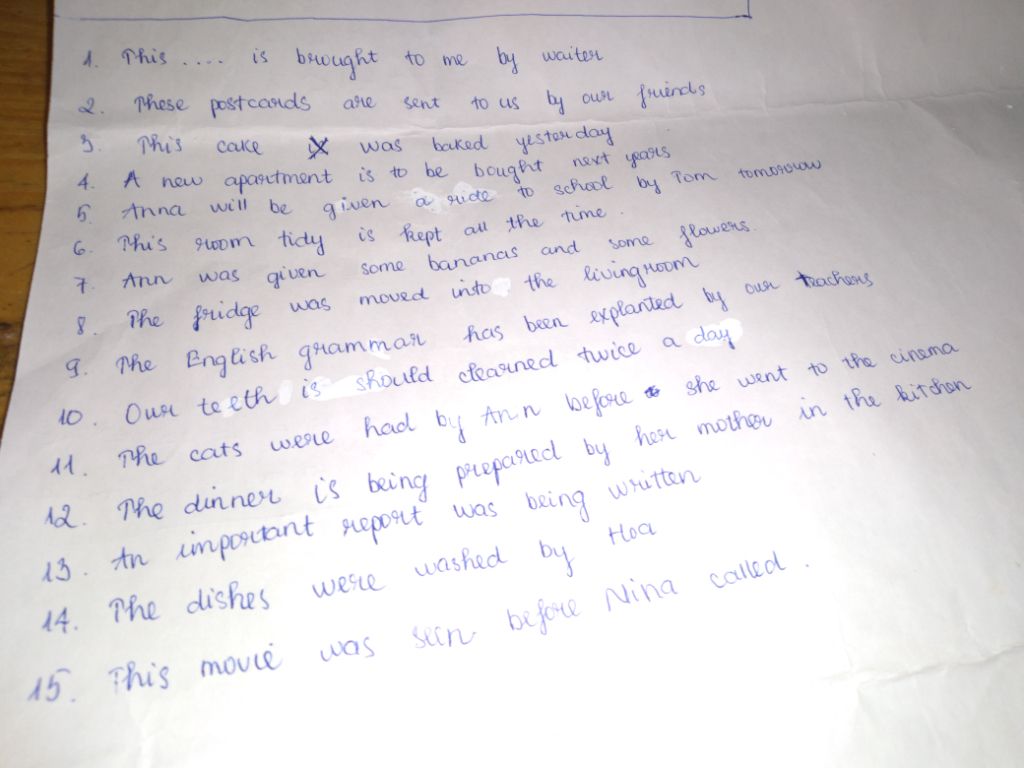 1. This .... is brought to me by waiter
2. These postcards are sent to us by our friends
3. This cake was baked yesterday
4. A new apartment is to be bought next years
5. Anna will be given a ride to school by Tom tomorrow
6. This room tidy is kept all the time.
7. Ann was given some bananas and some flowers.
8. The fridge was moved into the livingroom
9. The English grammar has been explanted by our teachers
10. Our teeth is should clearned twice a day
11. The cats were had by Ann before she went to the cinema
12. The dinner is being prepared by her mother in the kitchen
13. An important report was being written
14. The dishes were washed by Hoa
15. This movie was seen before Nina called.